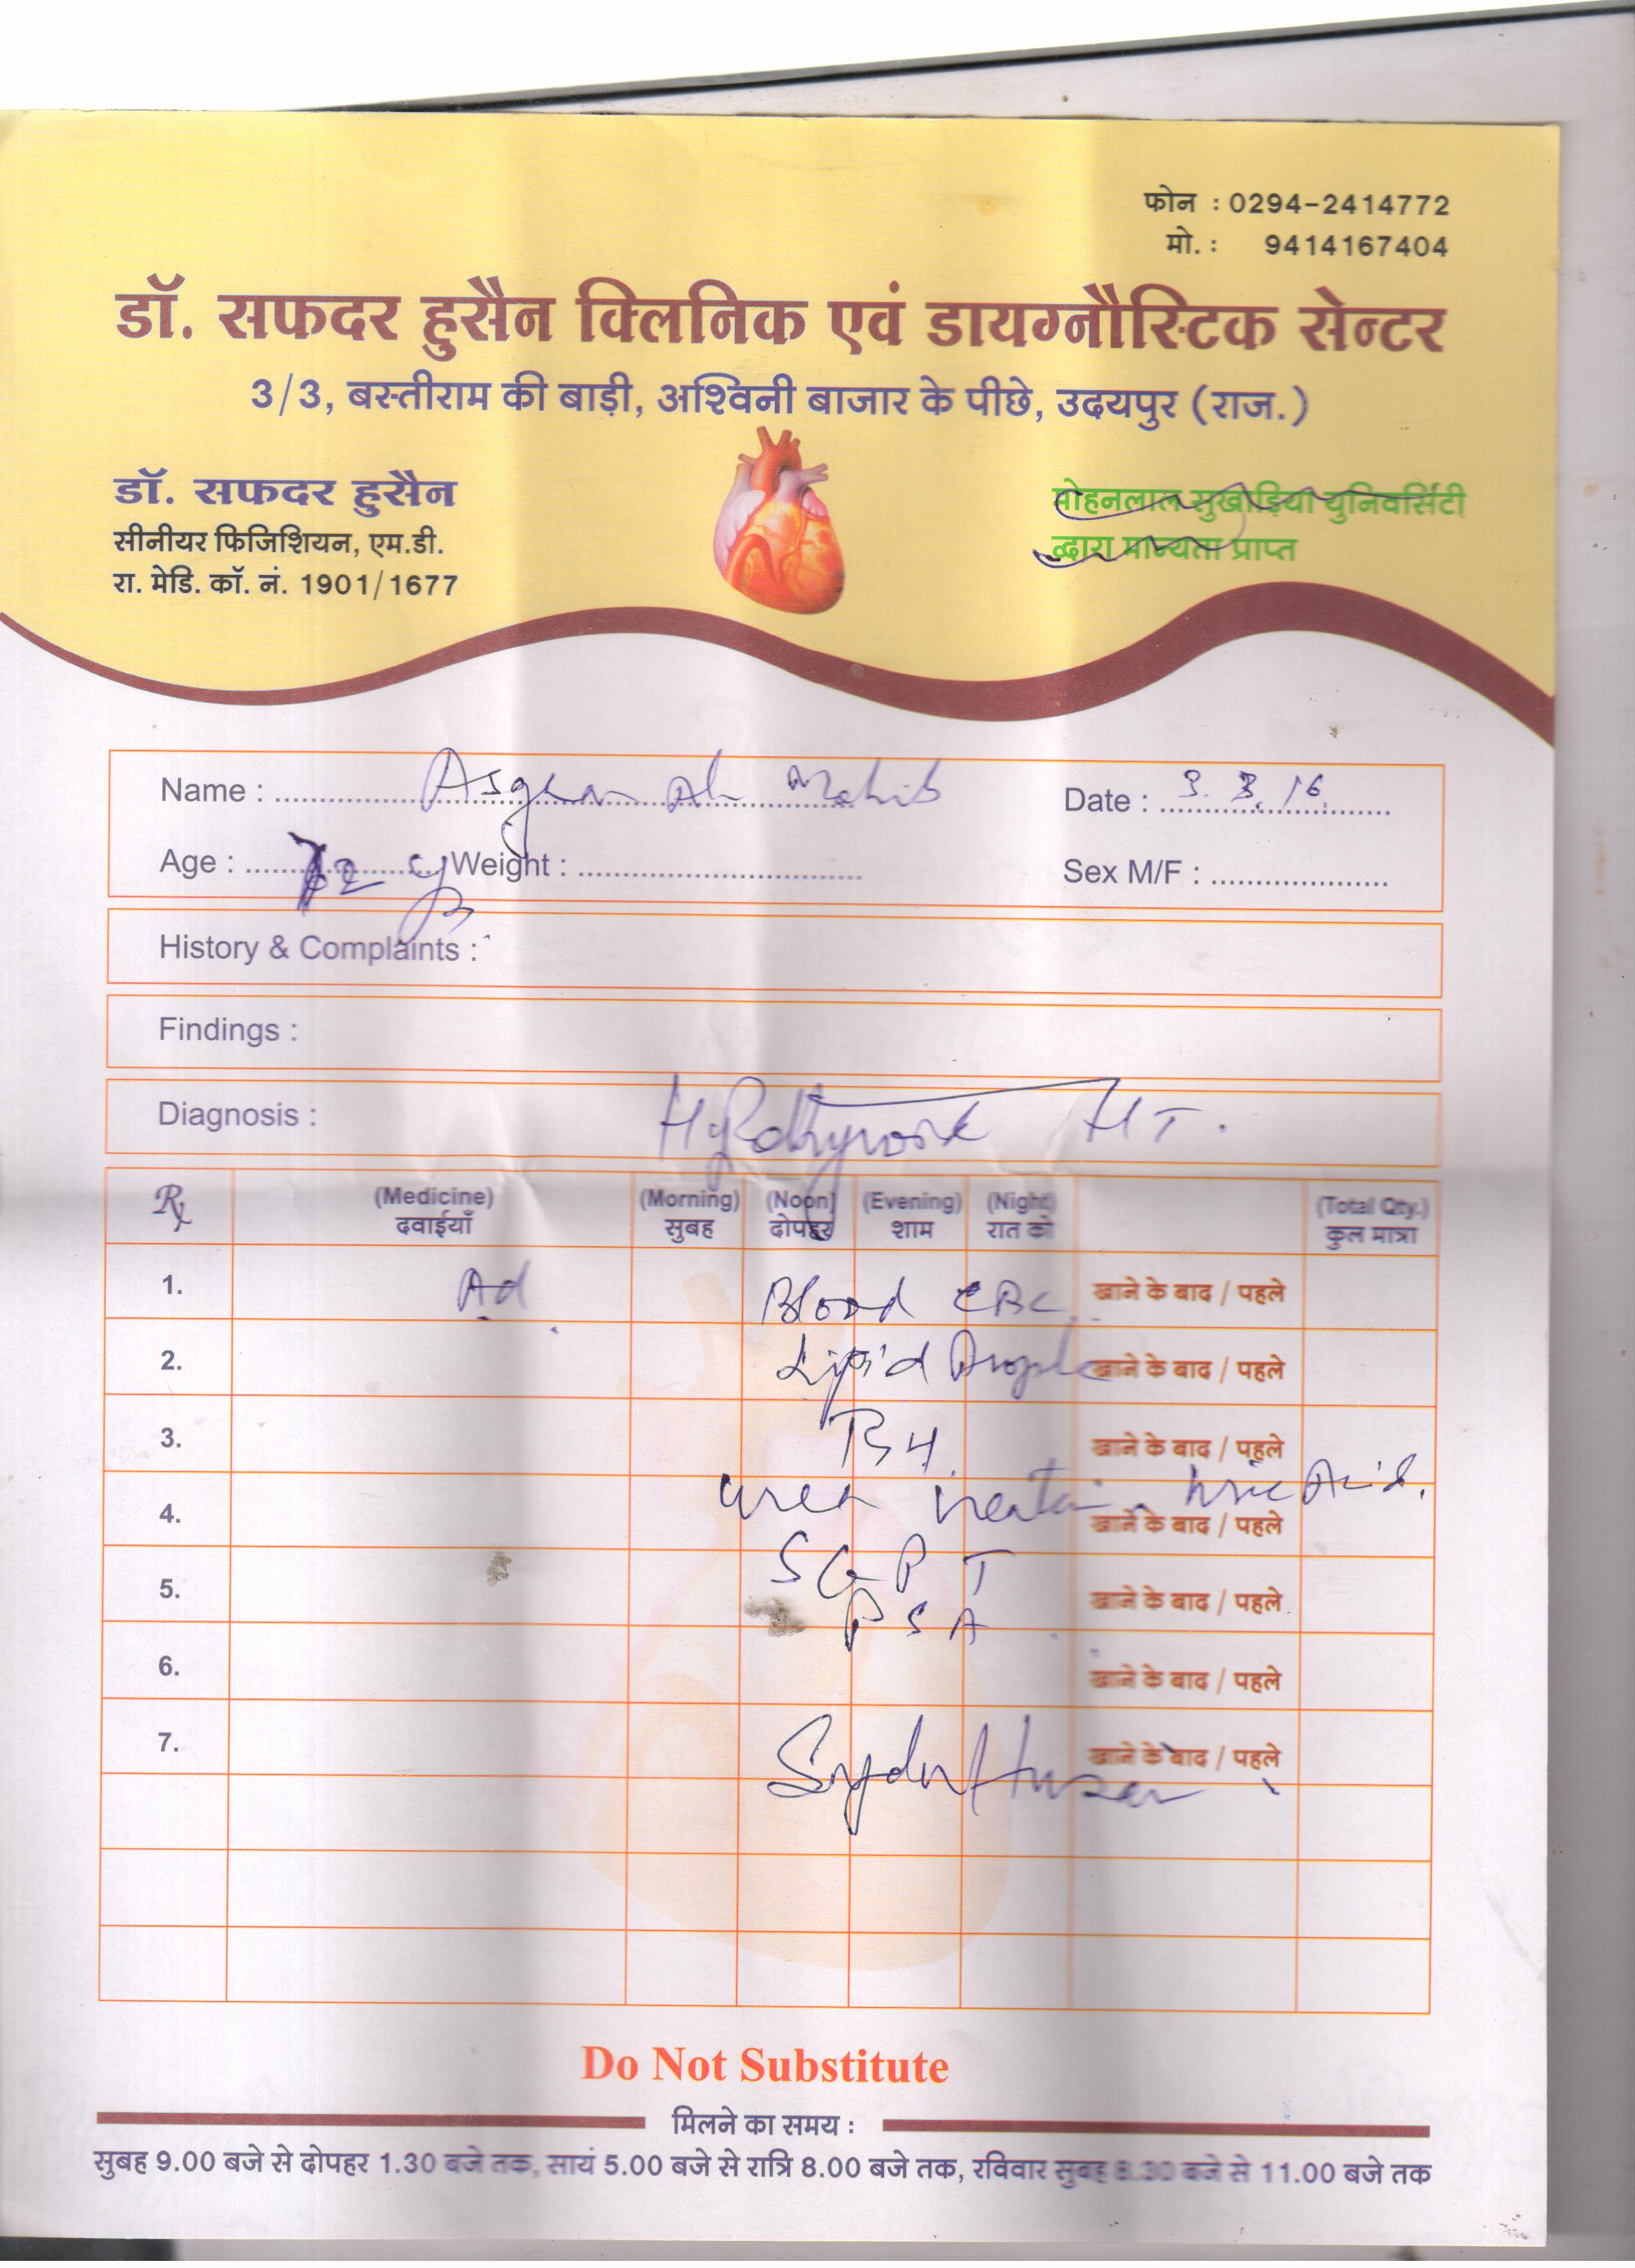 फोन : 0294-2414772
मो. : 9414167404
डॉ. सफदर हुसैन क्लिनिक एवं डायग्नौस्टिक सेन्टर
3/3, बस्तीराम की बाड़ी, अश्विनी बाजार के पीछे, उदयपुर (राज.)
डॉ. सफदर हुसैन
सीनीयर फिजिशियन, एम.डी.
रा. मेडि. कॉ. नं. 1901/1677
मोहनलाल सुखाड़िया युनिवर्सिटी
द्वारा मान्यता प्राप्त
Name : Asghar Ali Mohib Date : 3. 3. 16.
Age : 72 y Weight : Sex M/F :
History & Complaints :
Findings :
Diagnosis : HT.
Rx (Medicine) (Morning) (Noon) (Evening) (Night) (Total Qty.)
दवाईयाँ सुबह दोपहर शाम रात को कुल मात्रा
1. Ad Blood CBC खाने के बाद / पहले
2. Lipid Profile खाने के बाद / पहले
3. खाने के बाद / पहले
4. urea creatin. uric Acid. खाने के बाद / पहले
5. SGPT खाने के बाद / पहले
PSA
6. खाने के बाद / पहले
7. खाने के बाद / पहले
Do Not Substitute
मिलने का समय :
सुबह 9.00 बजे से दोपहर 1.30 बजे तक, सायं 5.00 बजे से रात्रि 8.00 बजे तक, रविवार सुबह 8.30 बजे से 11.00 बजे तक